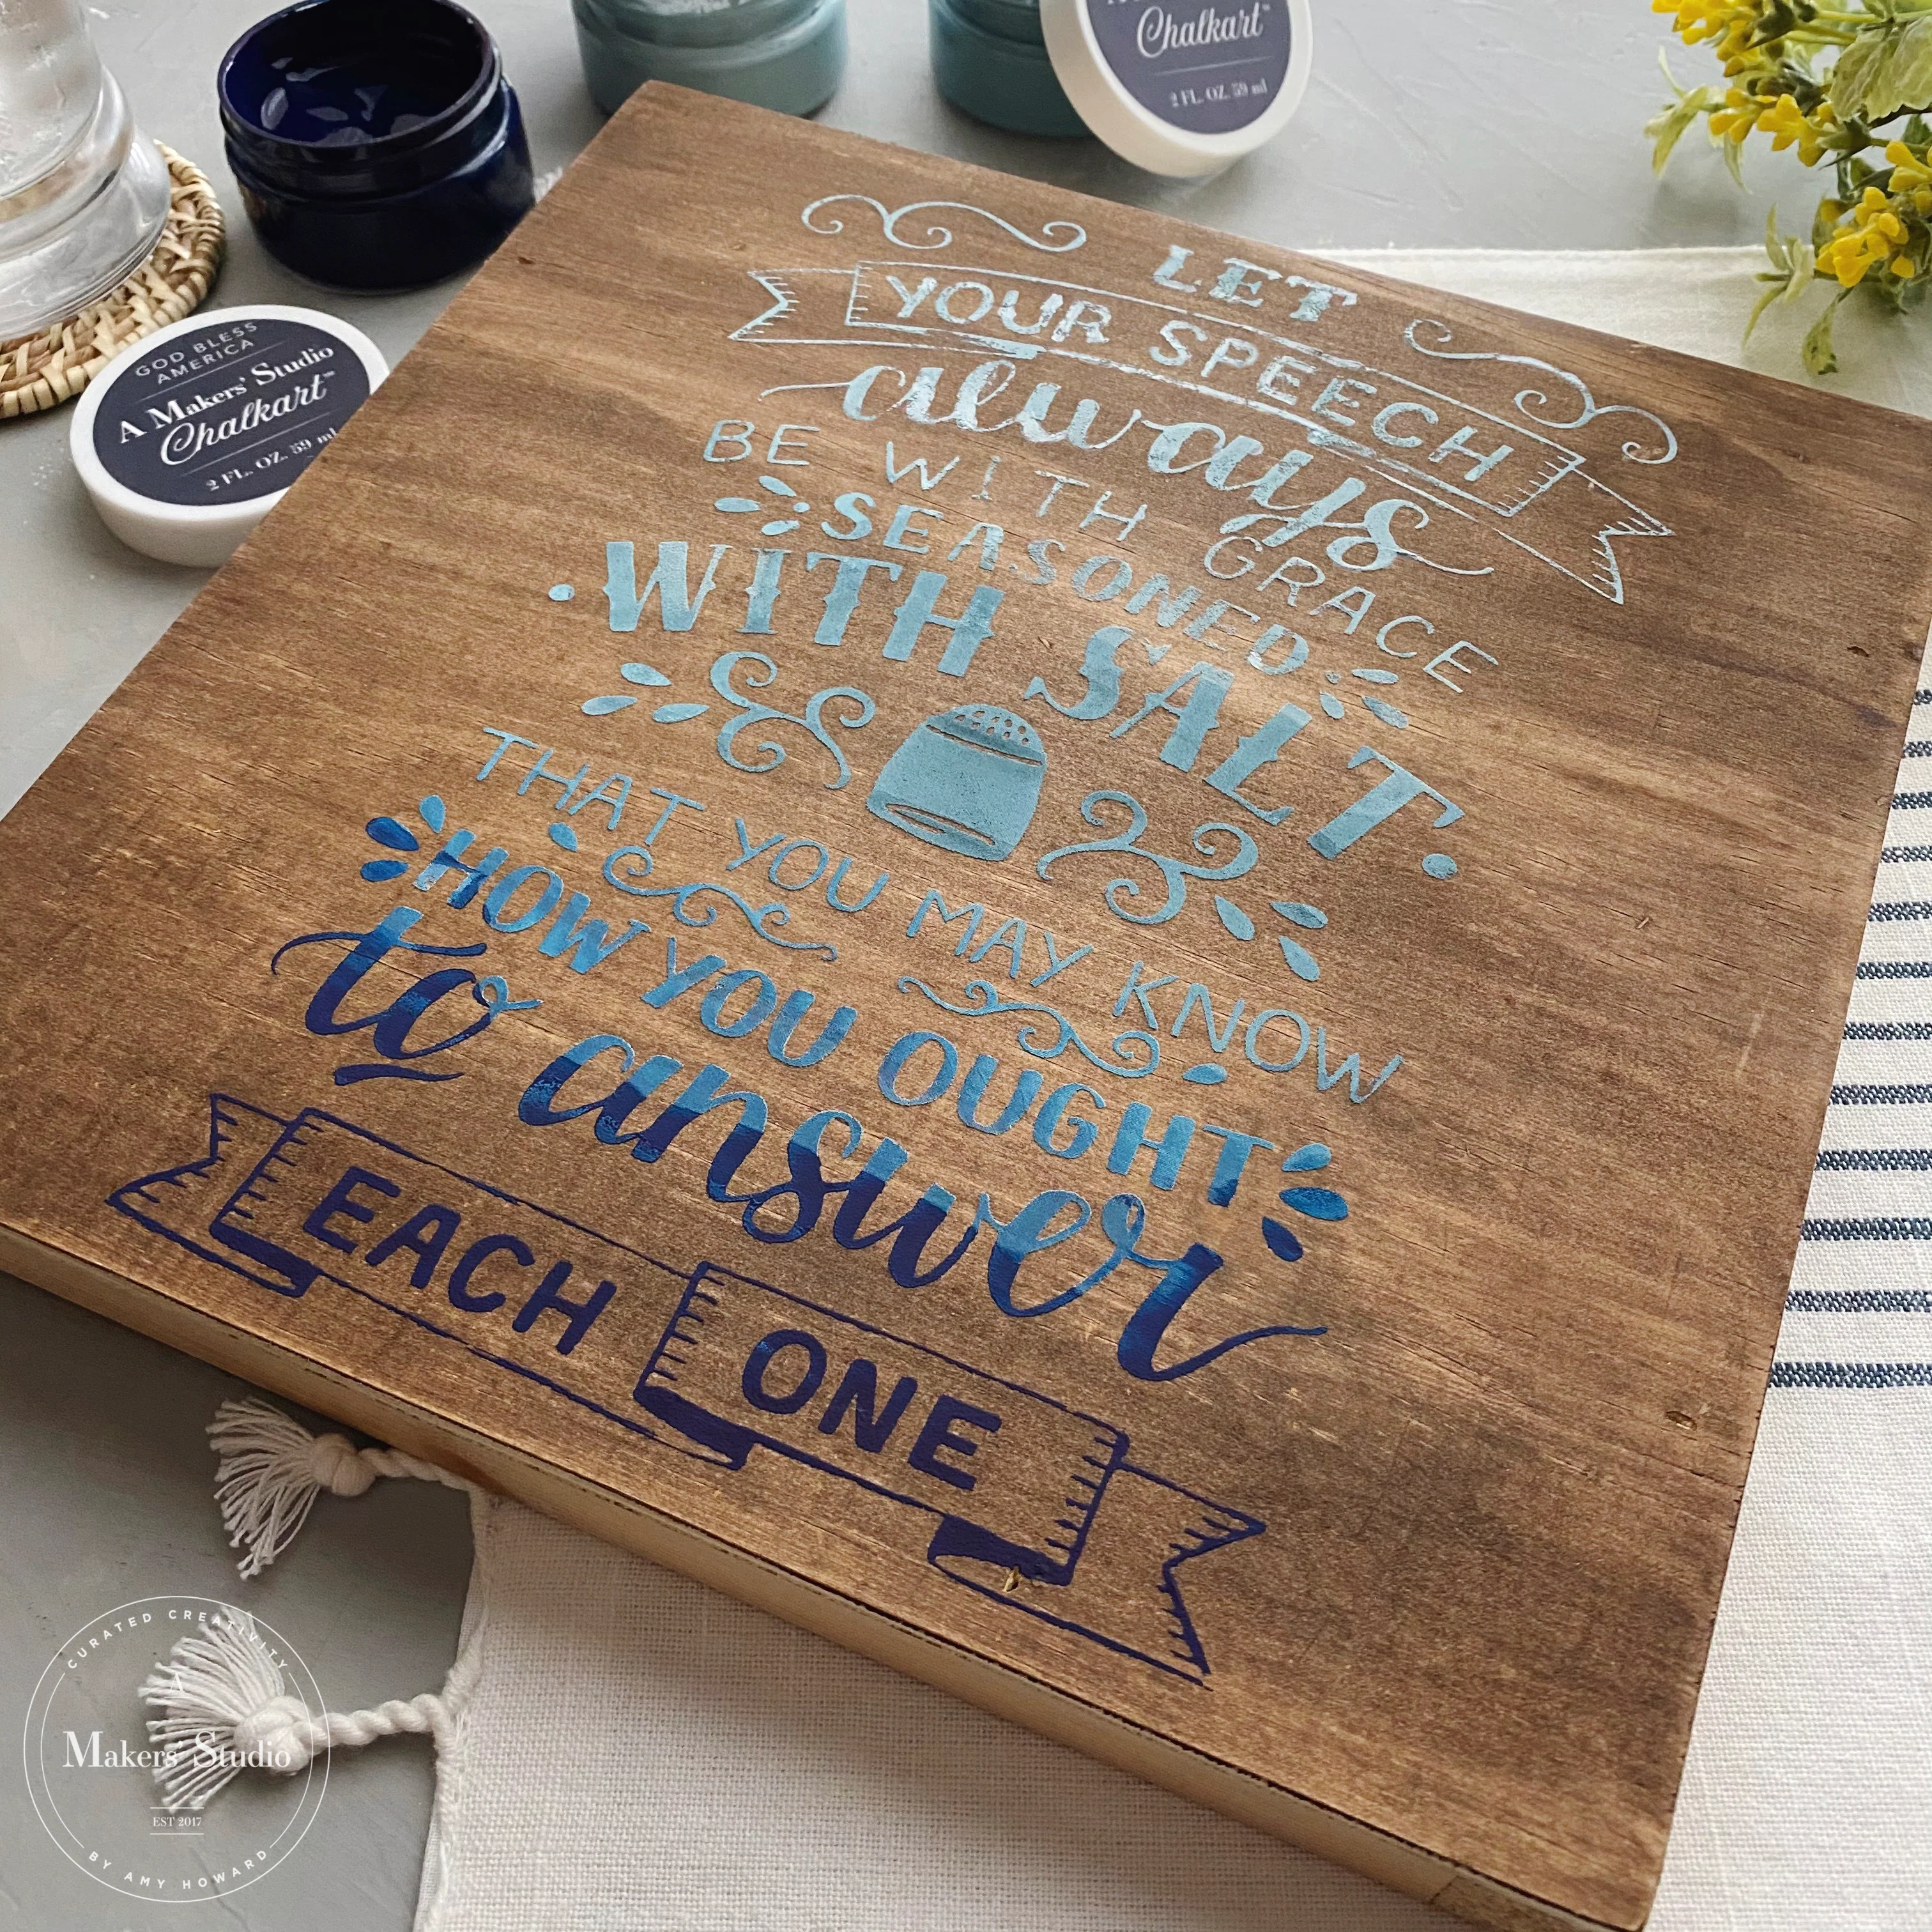 Chalkart™
2 FL. OZ. 59 ml
GOD BLESS
AMERICA
A Makers' Studio
Chalkart™
2 FL. OZ. 59 ml
LET
YOUR SPEECH
always
BE WITH GRACE
SEASONED
WITH SALT
THAT YOU MAY KNOW
HOW YOU OUGHT
to answer
EACH ONE
CURATED CREATIVITY
A
Makers' Studio
EST 2017
BY AMY HOWARD